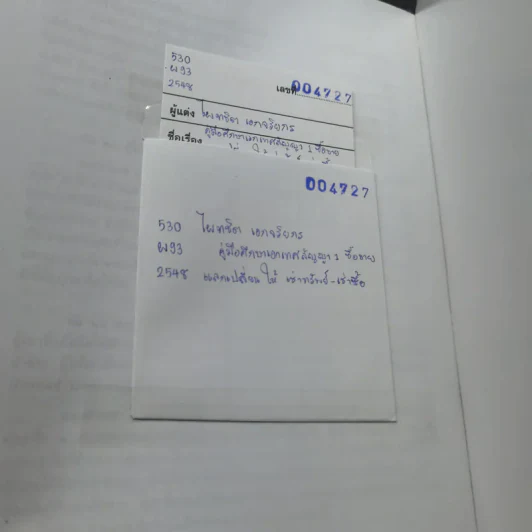 530
ผ93
2548
เลขที่ 004727
ผู้แต่ง ไผทชิต เอกจริยกร
ชื่อเรื่อง คู่มือศึกษาเอกเทศสัญญา 1 ซื้อขาย
004727
530 ไผทชิต เอกจริยกร
ผ93 คู่มือศึกษาเอกเทศสัญญา 1 ซื้อขาย
2548 แลกเปลี่ยน ให้ เช่าทรัพย์-เช่าซื้อ